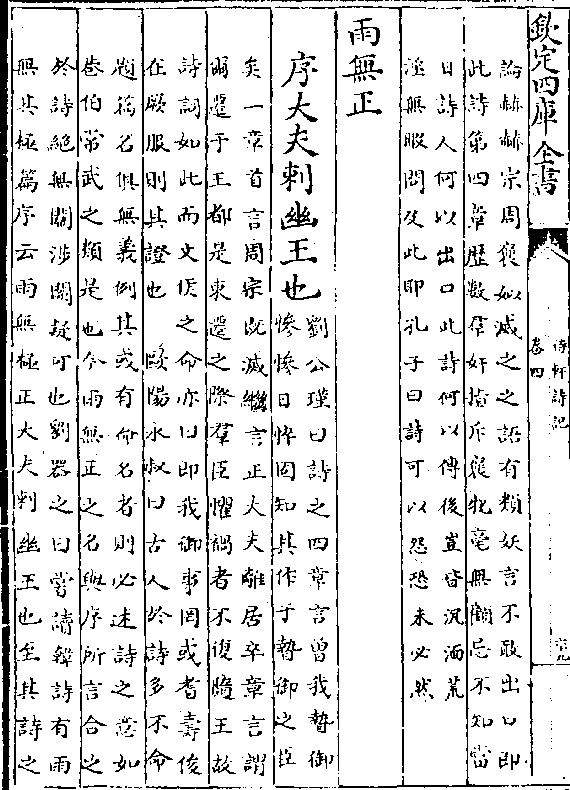 欽定四庫全書
待軒詩記
卷四
論赫赫宗周褒姒滅之之語有類妖言不敢出口即
此詩第四章歷數羣奸指斥褒氏毫無顧忌不知當
日詩人何以出口此詩何以傳後豈昏沉湎荒
淫無暇問及此耶孔子曰詩可以怨恐未必然
雨無正
序大夫刺幽王也
劉公瑾曰詩之四章言曾我暬御
憯憯日悴固知其作于暬御之臣
矣一章首言周宗既滅繼言正大夫離居卒章言謂
爾遷于王都是東遷之際羣臣懼禍者不復隨王故
詩詞如此而文侯之命亦曰即我御事罔或耆壽俊
在厥服則其證也 歐陽永叔曰古人於詩多不命
題篇名俱無義例其或有命名者則必述詩之意如
巷伯常武之類是也今雨無正之名與序所言合之
於詩絕無關涉闕疑可也劉器之曰嘗讀韓詩有雨
無其極篇序云雨無極正大夫刺幽王也至其詩之